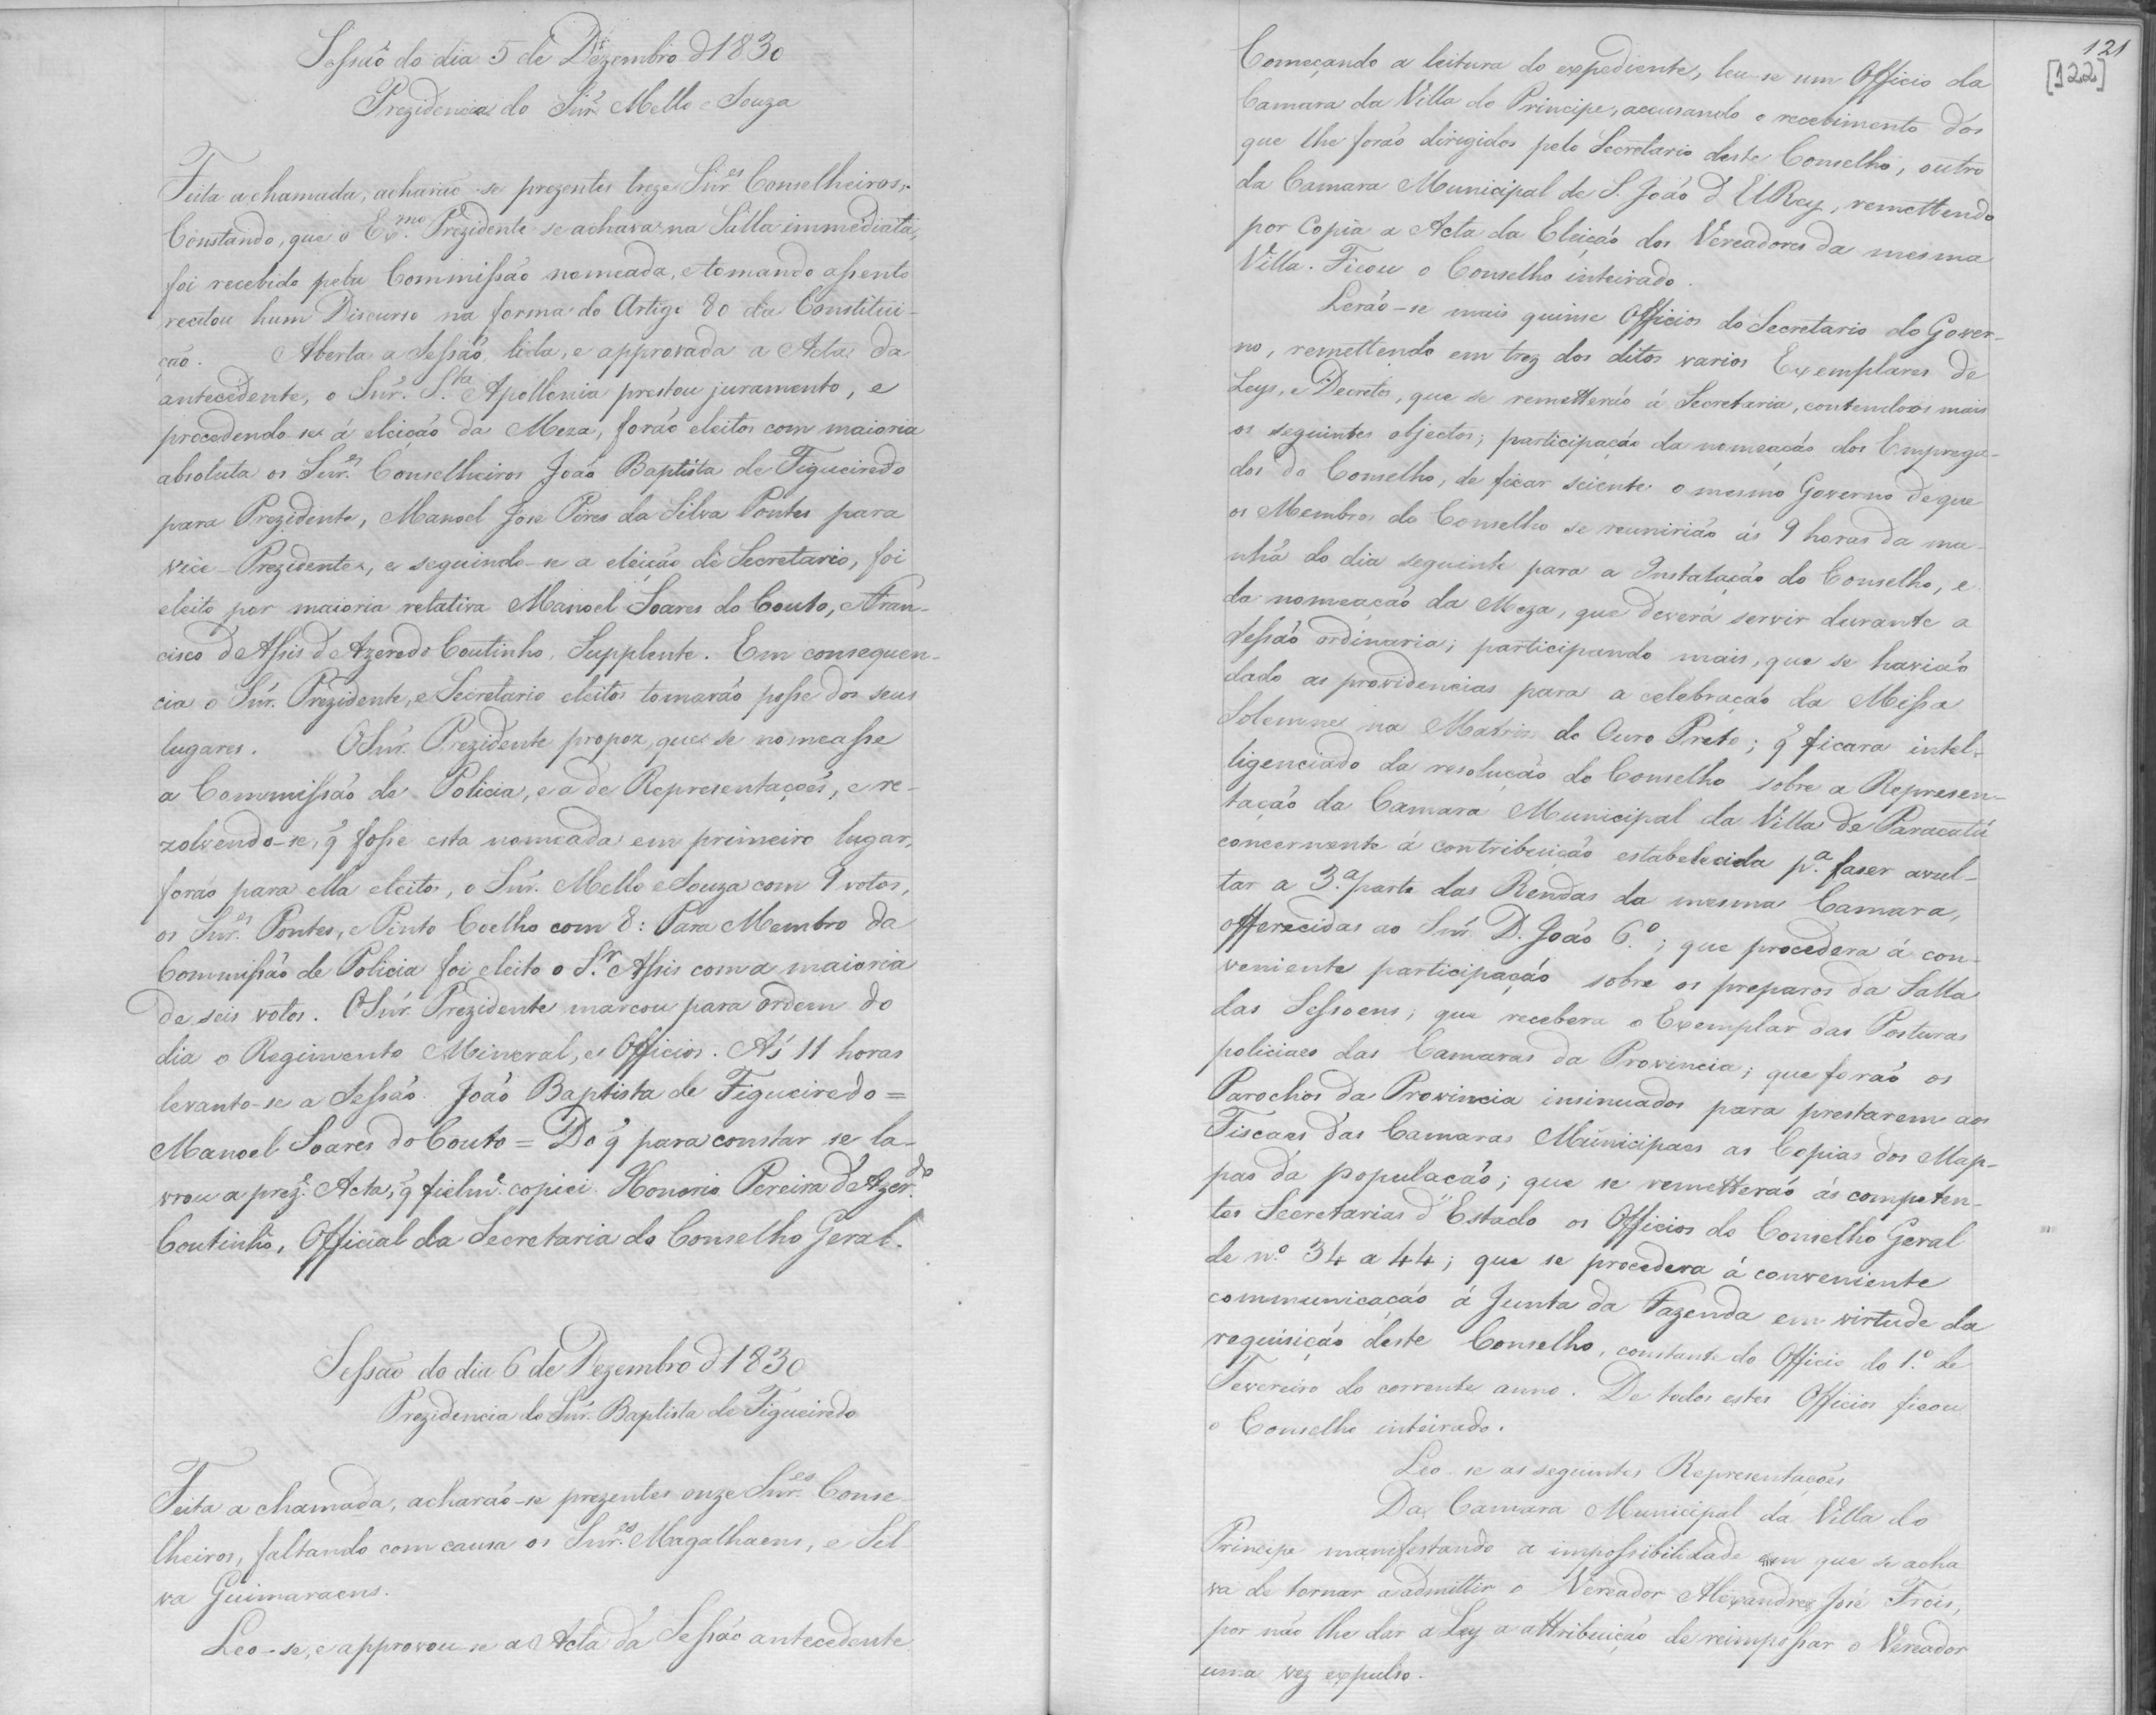 Sessão do dia 5 de Dezembro d 1830
Prezidencia do Snr. Mello e Souza
Feita a chamada, acharão-se prezentes treze Snr.es Conselheiros,
Constando, que o Ex.mo Prezidente se achava na Salla immediata,
foi recebido pela Commissão nomeada, e tomando assento
recitou hum Discurso na forma do Artigo 80 da Constitui-
ção. Aberta a Sessão, lida, e approvada a Acta da
antecedente, o Snr. S.ta Apollonia prestou juramento, e
procedendo-se á eleição da Meza, forão eleitos com maioria
absoluta os Snr.es Conselheiros João Baptista de Figueiredo
para Prezidente, Manoel Jose Pires da Silva Pontes para
vice-Prezidente, e seguindo-se a eleição de Secretario, foi
eleito por maioria relativa Manoel Soares do Couto, e Fran-
cisco d'Assis d'Azeredo Coutinho, Supplente. Em consequen-
cia o Snr. Prezidente, e Secretario eleitos tomarão posse dos seus
lugares. O Snr. Prezidente propoz, que se nomeasse
a Commissão de Policia, e a de Representações, e re-
zolvendo-se, q̃ fosse esta nomeada em primeiro lugar,
forão para ella eleitos, o Snr. Mello e Souza com 9 votos,
os Snr.es Pontes, e Pinto Coelho com 8: Para Membro da
Commissão de Policia foi eleito o S.r Assis com a maioria
de seis votos. O Snr. Prezidente marcou para ordem do
dia o Regimento Mineral, e Officios. A's 11 horas
levanto-se a Sessão. João Baptista de Figueiredo =
Manoel Soares do Couto = Do q̃ para constar se la-
vrou a prez.e Acta, q̃ fielm.e copiei Honorio Pereira d'Azer.do
Coutinho, Official da Secretaria do Conselho Geral.
Sessão do dia 6 de Dezembro d 1830
Prezidencia do Snr. Baptista de Figueiredo
Feita a chamada, acharão-se prezentes onze Snr.es Conse-
lheiros, faltando com causa os Snr.es Magalhaens, e Sil-
va Guimaraens.
Leo-se, e approvou-se a Acta da Sessão antecedente
121
[122]
Começando a leitura do expediente, leu-se um Officio da
Camara da Villa do Principe, accusando o recebimento dos
que lhe forão dirigidos pelo Secretario deste Conselho, outro
da Camara Municipal de S. João d'ElRey, remettendo
por Copia a Acta da Eleição dos Vereadores da mesma
Villa. Ficou o Conselho inteirado.
Lerão-se mais quinse Officios do Secretario do Gover-
no, remettendo em trez dos ditos varios Exemplares de
Leys, e Decretos, que se remetterão á Secretaria, contendo os mais
os seguintes objectos; participação da nomeação dos Emprega-
dos do Conselho, de ficar sciente o mesmo Governo de que
os Membros do Conselho se reunirião ás 9 horas da ma-
nhã do dia seguinte para a Instalação do Conselho, e
da nomeação da Meza, que deverá servir durante a
sessão ordinaria; participando mais, que se havião
dado as providencias para a celebração da Missa
Solemne na Matriz do Ouro Preto; q̃ ficara intel-
ligenciado da resolução do Conselho sobre a Represen-
tação da Camara Municipal da Villa de Paracatú
concernente á contribuição estabelecida p.a faser avul-
tar a 3.a parte das Rendas da mesma Camara,
offerecidas ao Snr. D. João 6.o; que procedera á con-
veniente participação sobre os preparos da Salla
das Sessoens; que recebera o Exemplar das Posturas
policiaes das Camaras da Provincia; que forão os
Parochos da Provincia insinuados para prestarem aos
Fiscaes das Camaras Municipaes as Copias dos Map-
pas da população; que se remetterão ás competen-
tes Secretarias d'Estado os Officios do Conselho Geral
de n.o 34 a 44; que se procedera á conveniente
communicação á Junta da Fazenda em virtude da
requisição deste Conselho, constante do Officio do 1.o de
Fevereiro do corrente anno. De todos estes Officios ficou
o Conselho inteirado.
Leo-se as seguintes Representações
Da Camara Municipal da Villa do
Principe manifestando a impossibilidade em que se acha
va de tornar a admittir o Vereador Alexandre José Frois,
por não lhe dar a Ley a attribuição de reimpossar o Vereador
uma vez expulso.